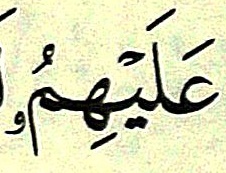 عَلَيْهِمُۥ